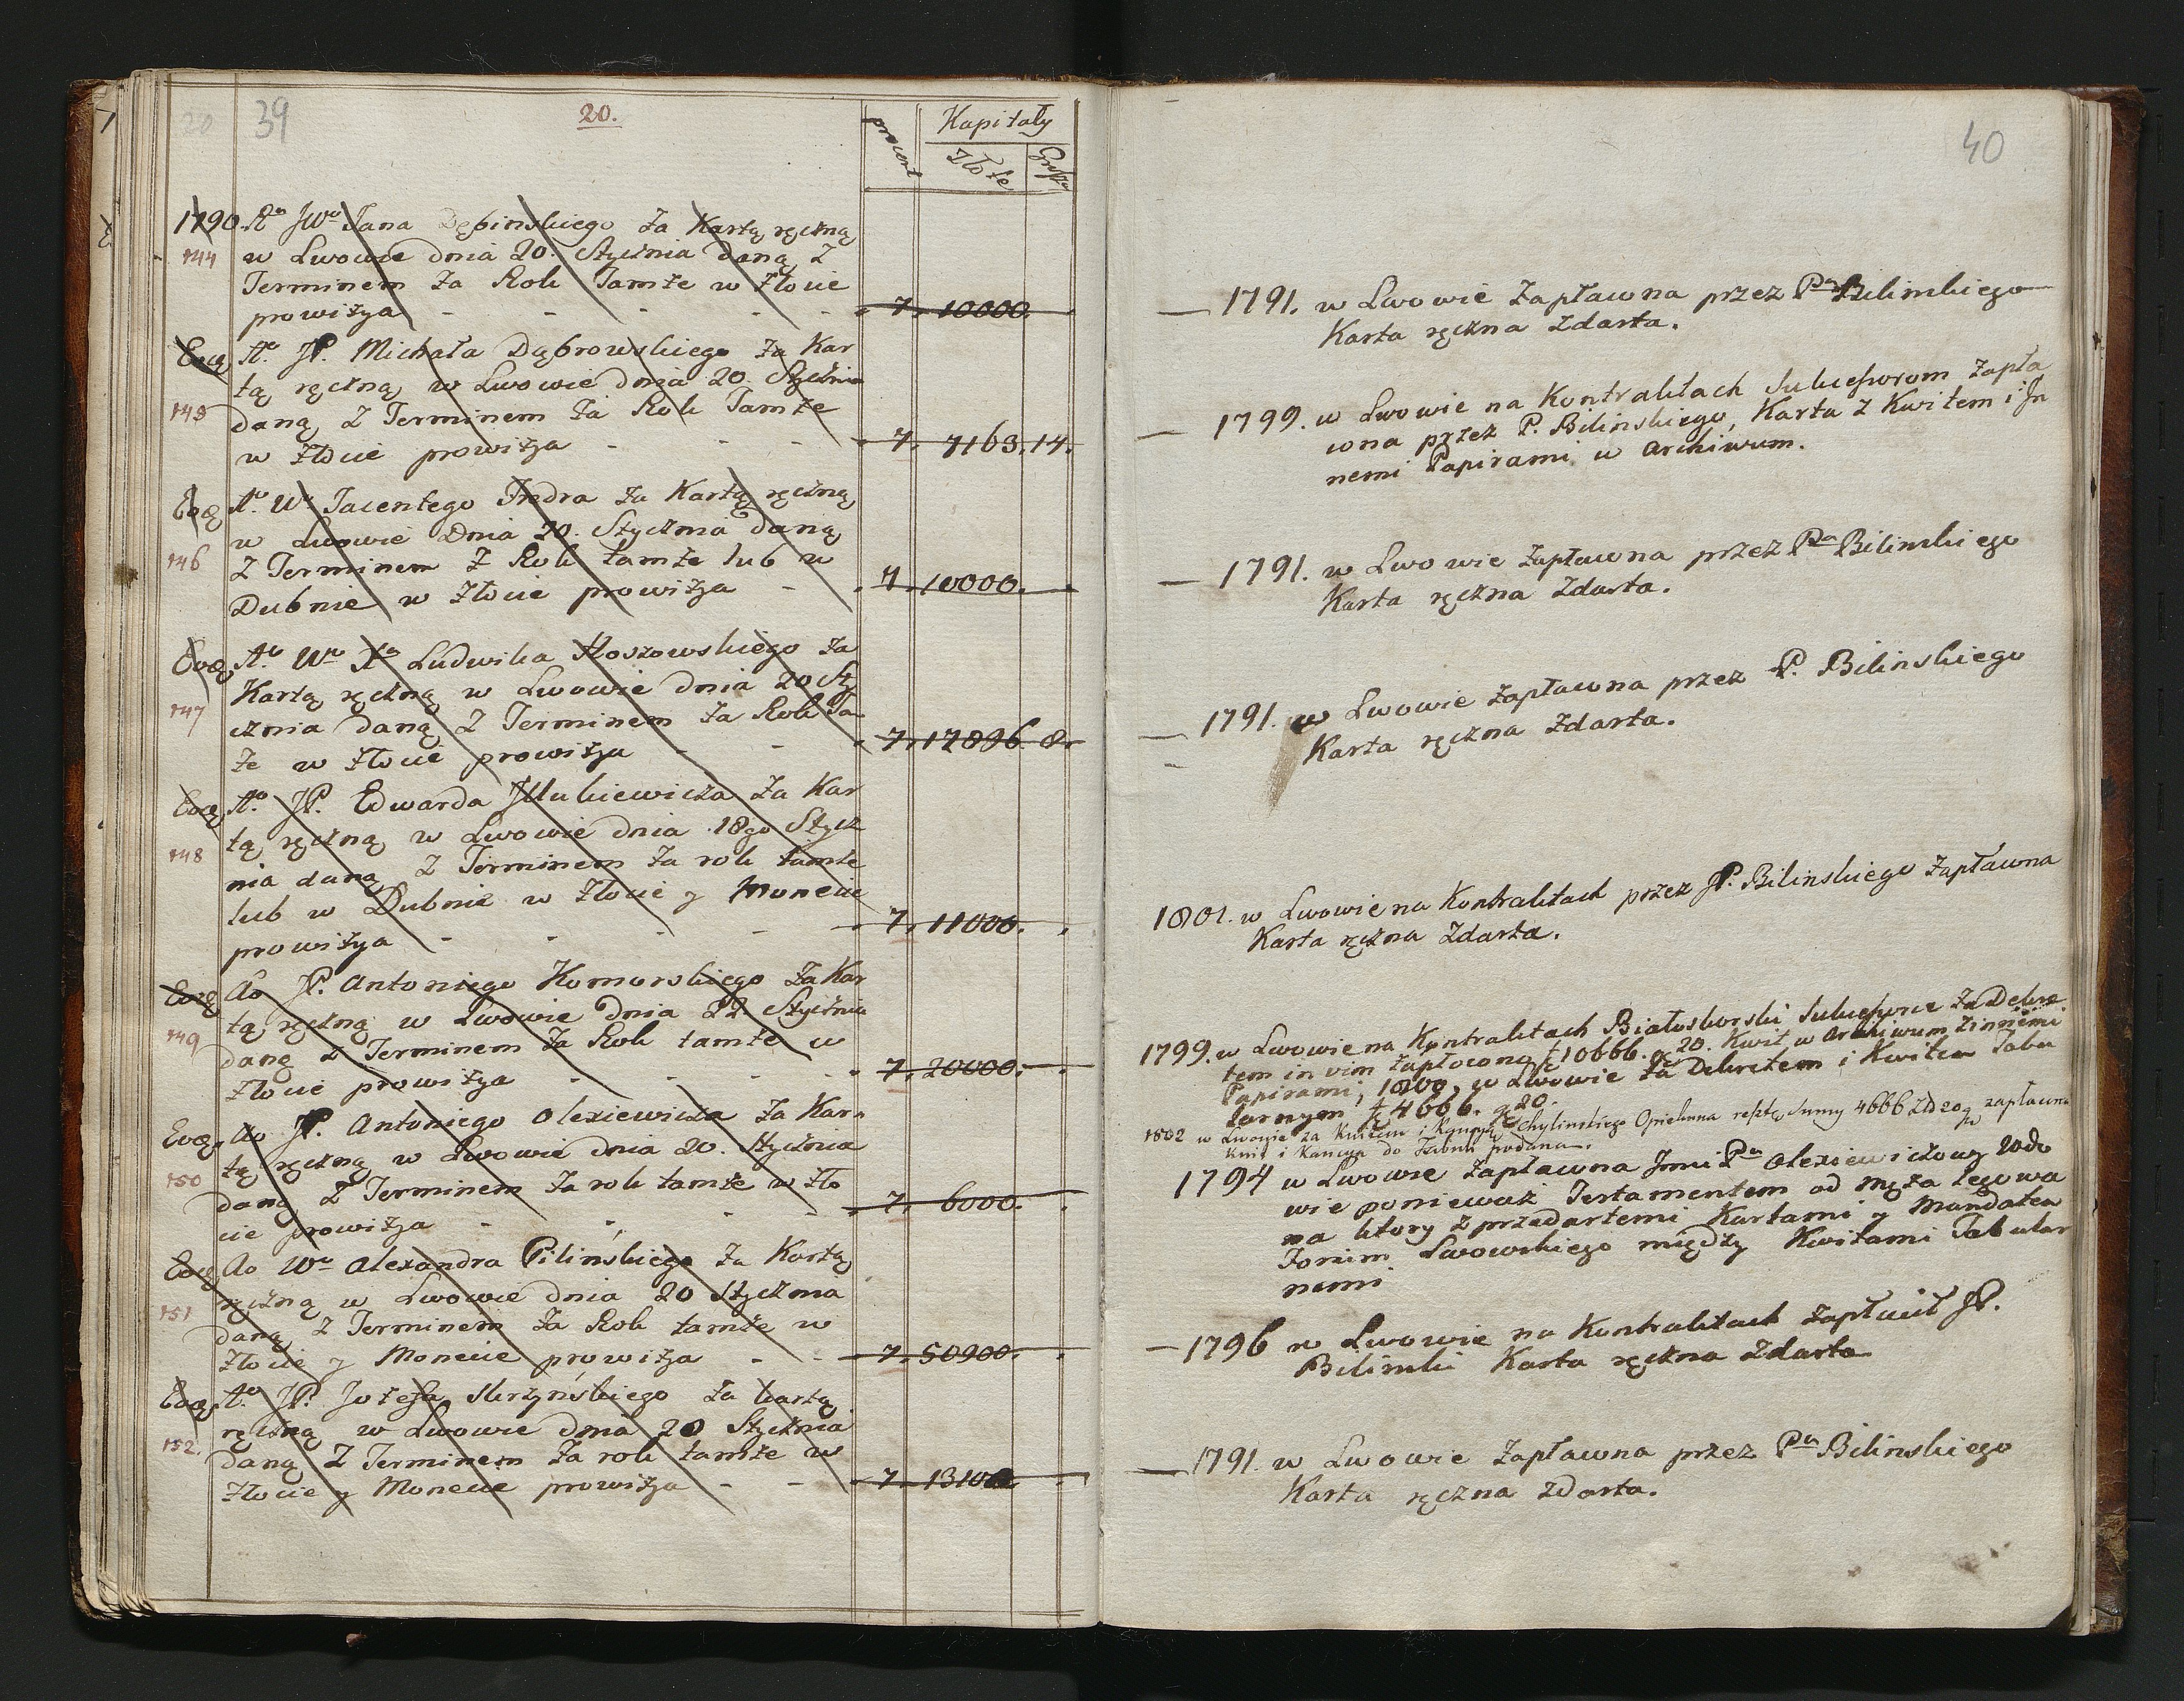 20 39
20.
procent
Kapitały
Złote
Grosze
1790. Ao JWo Jana Dębinskiego Za Kartą ręczną
144 w Lwowie dnia 20. Stycznia daną Z
Terminem Za Rok Tamże w złocie
prowizya - - - - 7. 10000.
Eoq Ao JP. Michała Dąbrowskiego Za Kar
tą ręczną w Lwowie dnia 20. Stycznia
145 daną Z Terminem Za Rok Tamże
w złocie prowizya - - - 7. 7163. 14.
Eoq Ao Wo Jacentego Fredra Za Kartą ręczną
w Lwowie Dnia 20. Stycznia daną
146 Z Terminem Z Rok tamże lub w
Dubnie w złocie prowizya - - 7. 10000.
Eoq Ao Wo Xa Ludwika Hoszowskiego Za
Kartą ręczną w Lwowie dnia 20 Sty
147 cznia daną Z Terminem Za Rok Ta
że w złocie prowizya - - - 7. 17896. 8.
Eoq Ao JP. Edwarda Za Kar
tą ręczną w Lwowie dnia 18go Stycz
148 nia daną Z Terminem Za rok tamże
lub w Dubnie w złocie y Monecie
prowizya - - - - 7. 11000.
Eoq Ao JP. Antoniego Komorskiego Za Kar
tą ręczną w Lwowie dnia 22 Stycznia
149 daną Z Terminem Za Rok tamże w
złocie prowizya - - - - 7. 20000.
Eoq Ao JP. Antoniego Olexiewicza Za Kar
tą ręczną w Lwowie dnia 20. Stycznia
150 daną Z Terminem Za rok tamże w zło
cie prowizya - - - - 7. 6000.
Eoq Ao Wo Alexandra Pilińskiego Za Kartą
ręczną w Lwowie dnia 20 Stycznia
151 daną Z Terminem Za Rok tamże w
złocie y Monecie prowizya - - 7. 50900.
Eoq Ao JP. Jozefa Skrzyńskiego Za kartą
ręczną w Lwowie dnia 20 Stycznia
152. daną Z Terminem Za rok tamże w
złocie y Monecie prowizya - - 7. 13100
40
1791. w Lwowie Zapławna przez Pa Bilinskiego
Karta ręczna Zdarta.
1799. w Lwowie na Kontraktach Sukcessorom Zapła
wna przez P. Bilinskiego, Karta z Kwitem i In
nemi Papirami w Archiwum.
1791. w Lwowie Zapławna przez Pa Bilinskiego
Karta ręczna Zdarta.
1791. w Lwowie Zapławna przez P. Bilinskiego
Karta ręczna Zdarta.
1801. w Lwowie na Kontraktach przez JP. Bilinskiego Zapławna
Karta ręczna Zdarta.
1799. w Lwowie na Kontraktach Białoskorski Sukcessorce Za Dekre
tem in vim Zapłocono 10666. 20. Kwit w Archiwum Zinnemi
Papirami, 1800, w Lwowie Za Dekretem i Kwitem Tabu
larnym 4666. 20.
1802 w Lwowie za Kwitem i Kaucyą Chylinskiego Opiekuna resztę Sumy 4666 Zł 20 g zapławna
Kwit i Kaucya do Tabuli podana.
1794 w Lwowie Zapławna Jmci Pa Olexiewiczowy Wdo
wie ponieważ Testamentem od Męża legowa
na ktory z przedartemi Kartami y Mandatem
Forum Lwowskiego między Kwitami Tabular
nemi
1796 w Lwowie na Kontraktach Zapłacił JP.
Bilinski Karta ręczna Zdarta
1791. w Lwowie Zapławna przez Pa Bilinskiego
Karta ręczna Zdarta.